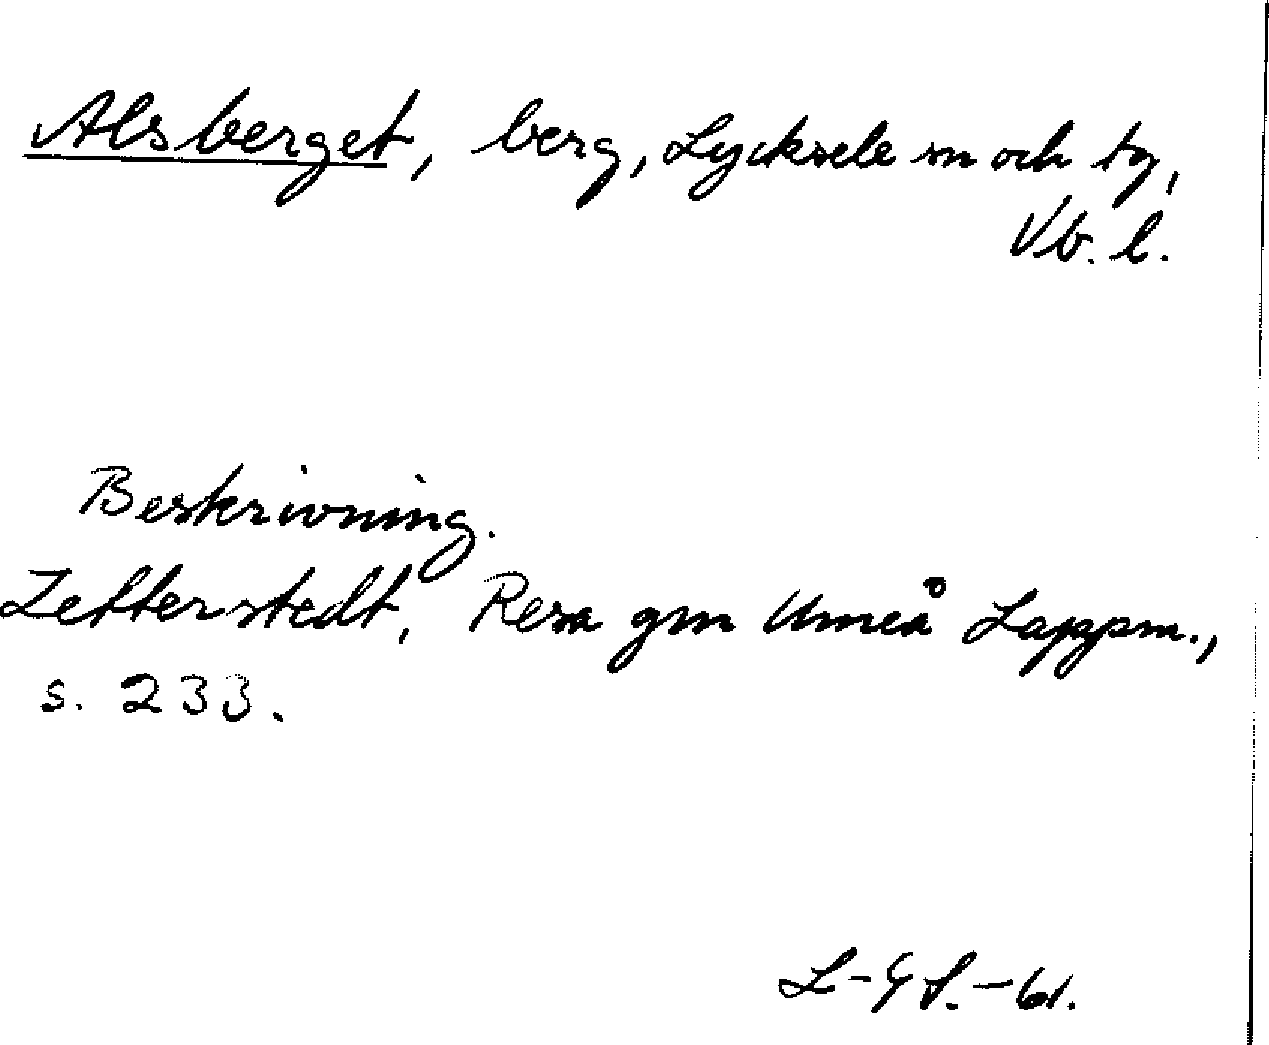 Alsberget, berg, Lycksele sn och tg,
Vb. l.
Beskrivning.
Zetterstedt, Resa gm Umeå Lappm.,
s. 233.
L-G S.-61.